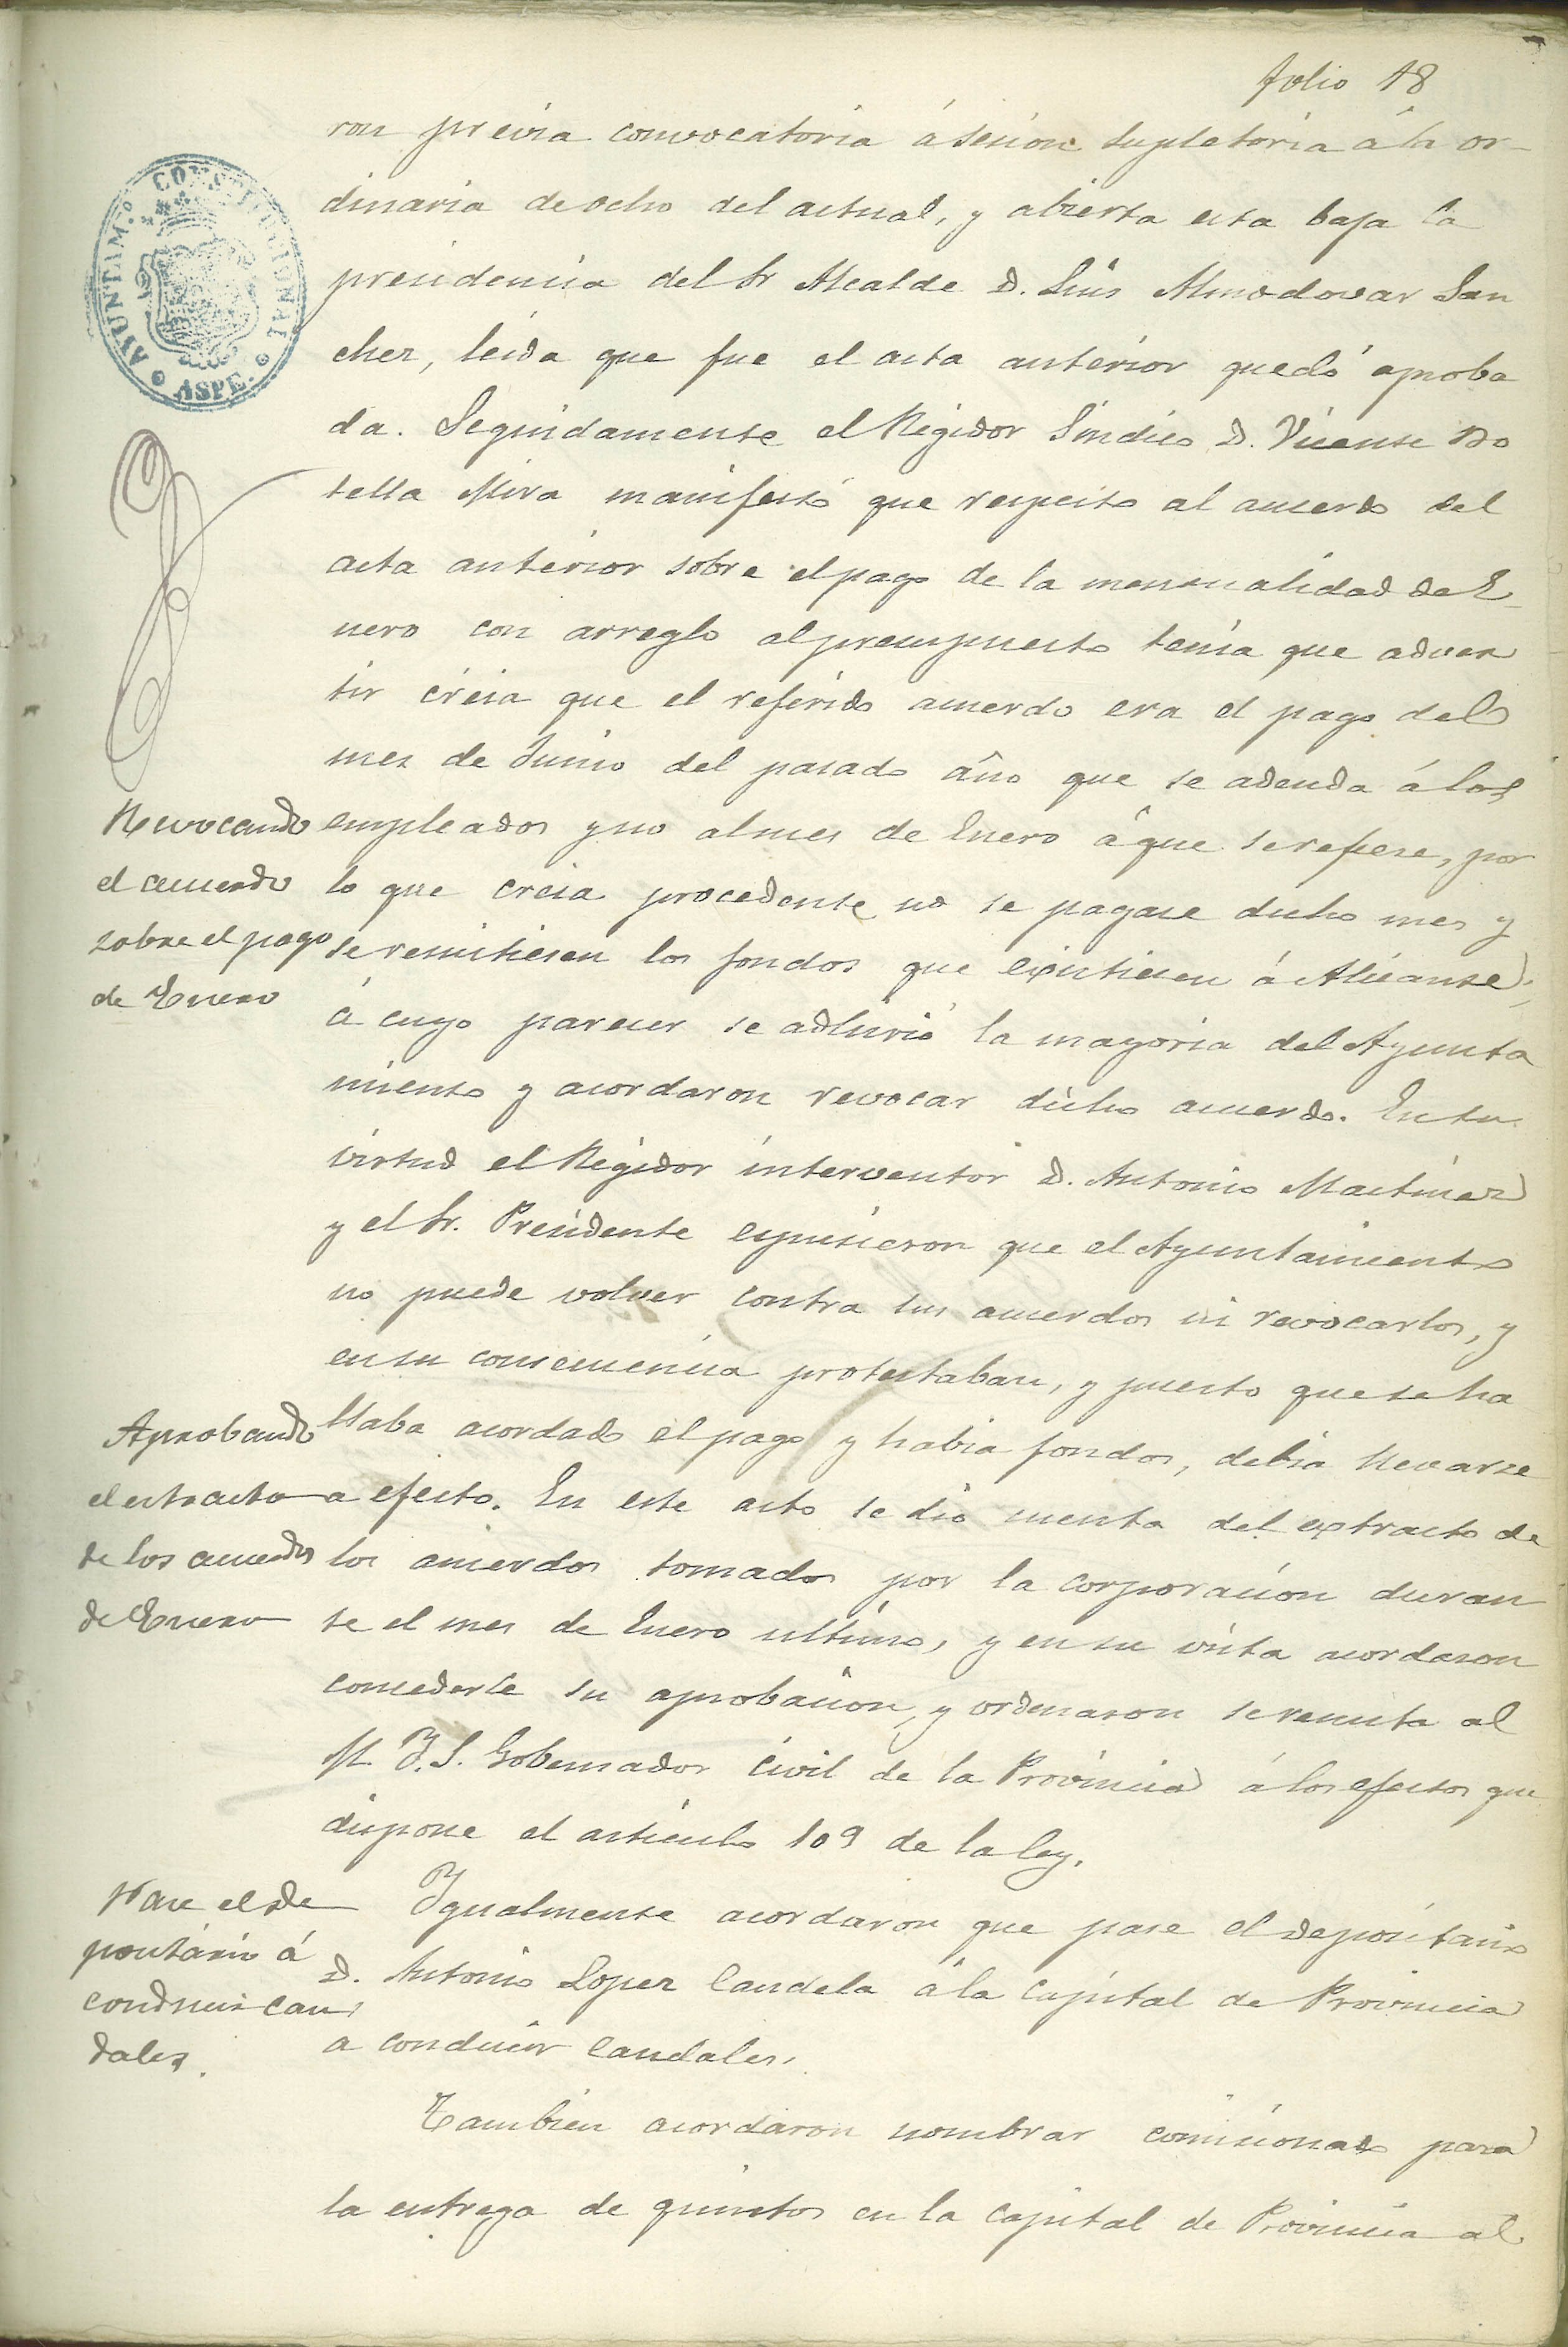 folio 18
ron previa convocatoria á sesion supletoria á la or-
dinaria de ocho del actual, y abierta esta baja la
presidencia del Sr Alcalde D. Luis Almodovar San
chez, leida que fue el acta anterior quedó aproba
da. Seguidamente el Regidor Sindico D. Vicente Bo
tella Mira manifestó que respecto al acuerdo del
acta anterior sobre el pago de la mensualidad de E-
nero con arreglo al presupuesto tenia que adver
tir creia que el referido acuerdo era el pago del
mes de Junio del pasado año que se adeuda á los
empleados y no al mes de Enero á que se refiere, por
lo que creia procedente no se pagase dicho mes y
se remitiesen los fondos que existiesen á Alicante;
á cuyo parecer se adhirió la mayoria del Ayunta
miento y acordaron revocar dicho acuerdo. En su
virtud el Regidor interventor D. Antonio Martinez
y el Sr. Presidente expusieron que el Ayuntamiento
no puede volver contra sus acuerdos ni revocarlos, y
en su consecuencia protestaban, y puesto que se ha
llaba acordado el pago y habia fondos, debia llevarse
a efecto. En este acto se dió cuenta del extracto de
los acuerdos tomados por la corporacion duran
te el mes de Enero ultimo, y en su vista acordaron
concederle su aprobacion, y ordenaron se remita al
M. I. S. Gobernador civil de la Provincia á los efectos que
dispone el articulo 109 de la ley.
Igualmente acordaron que pase el depositario
D. Antonio Lopez Candela á la capital de Provincia
a conducir caudales.
Tambien acordaron nombrar comisionado para
la entrega de quintos en la capital de Provincia al
AYUNTAM.º CONSTITUCIONAL
ASPE.
Revocando
el acuerdo
sobre el pago
de Enero
Aprobando
el estracto
de los acuerdos
de Enero
Pase el de
positario á
conducir cau
dales.